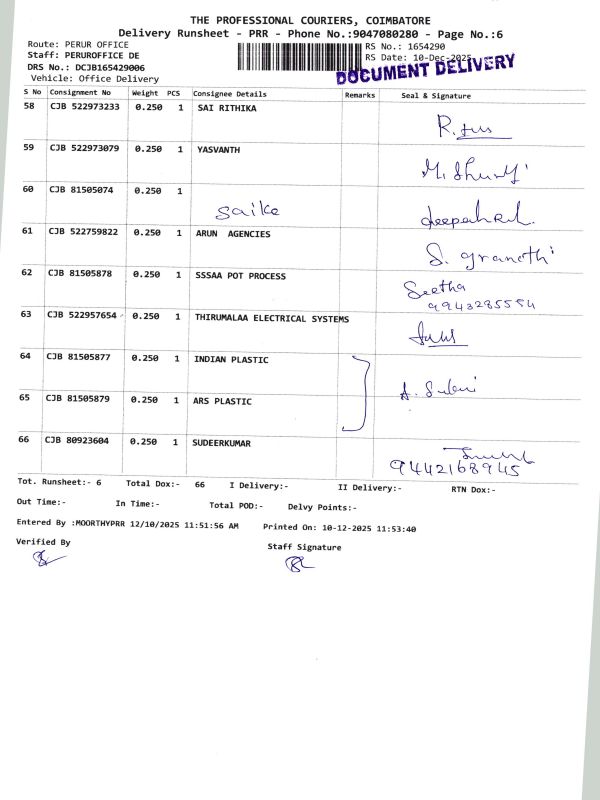 THE PROFESSIONAL COURIERS, COIMBATORE
Delivery Runsheet - PRR - Phone No.:9047080280 - Page No.:6
Route: PERUR OFFICE
Staff: PERUROFFICE DE
DRS No.: DCJB165429006
Vehicle: Office Delivery
RS No.: 1654290
RS Date: 10-Dec-2025
DOCUMENT DELIVERY
S No Consignment No Weight PCS Consignee Details Remarks Seal & Signature
58 CJB 522973233 0.250 1 SAI RITHIKA
59 CJB 522973079 0.250 1 YASVANTH
60 CJB 81505074 0.250 1 Saike
61 CJB 522759822 0.250 1 ARUN AGENCIES
62 CJB 81505878 0.250 1 SSSAA POT PROCESS Seetha
9943285554
63 CJB 522957654 0.250 1 THIRUMALAA ELECTRICAL SYSTEMS
64 CJB 81505877 0.250 1 INDIAN PLASTIC
65 CJB 81505879 0.250 1 ARS PLASTIC
66 CJB 80923604 0.250 1 SUDEERKUMAR
9442168945
Tot. Runsheet:- 6 Total Dox:- 66 I Delivery:- II Delivery:- RTN Dox:-
Out Time:- In Time:- Total POD:- Delvy Points:-
Entered By :MOORTHYPRR 12/10/2025 11:51:56 AM Printed On: 10-12-2025 11:53:40
Verified By
Staff Signature